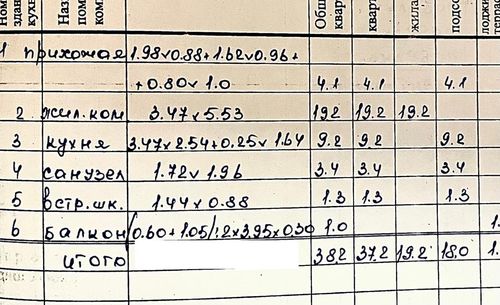 Общ
кварт
кварти
жила
подсо
лоджи
1 прихожая 1.98×0.88+1.62×0.96+
+0.80×1.0 4.1 4.1 4.1
2 жил.ком. 3.47×5.53 19.2 19.2 19.2
3 кухня 3.47×2.54+0.25×1.64 9.2 9.2 9.2
4 санузел 1.72×1.96 3.4 3.4 3.4
5 встр.шк. 1.44×0.88 1.3 1.3 1.3
6 балкон (0.60+1.05)/2×3.95×0.30 1.0 1.
итого 38.2 37.2 19.2 18.0 1.